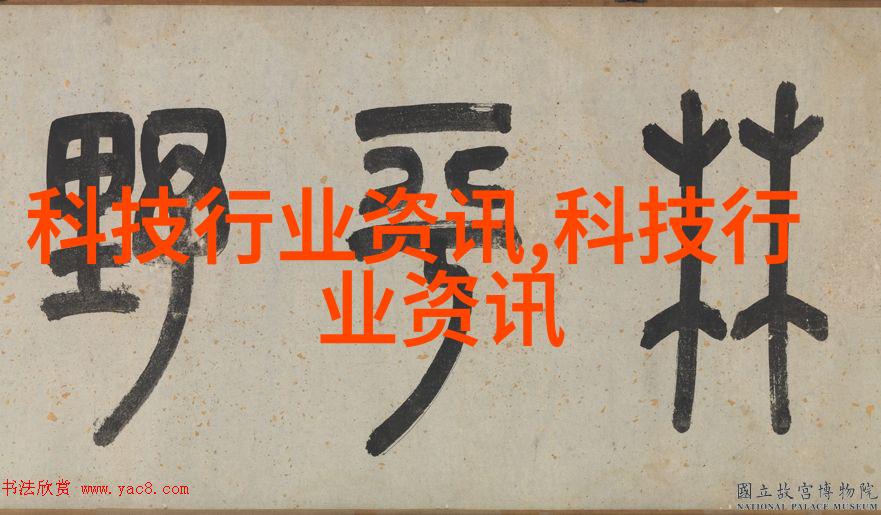 林平野
科技行业资讯,科技行
业资讯
书法欣赏 www.yac8.com
國立故宮博物院
NATIONAL PALACE MUSEUM